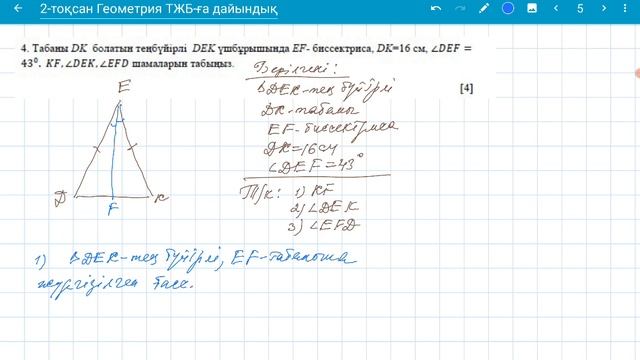 2-тоқсан Геометрия ТЖБ-ға дайындық
5
4. Табаны DK болатын теңбүйірлі DEK үшбұрышында EF- биссектриса, DK=16 см, ∠DEF =
43⁰. KF,∠DEK,∠EFD шамаларын табыңыз.
[4]
Берілгені:
ΔDEK-тең бүйірлі
DK-табаны
EF-биссектриса
DK=16см
∠DEF=43°
Т/к: 1) KF
2) ∠DEK
3) ∠EFD
E
D
F
K
1) ΔDEK-тең бүйірлі, EF-табанына
жүргізілген бисс.